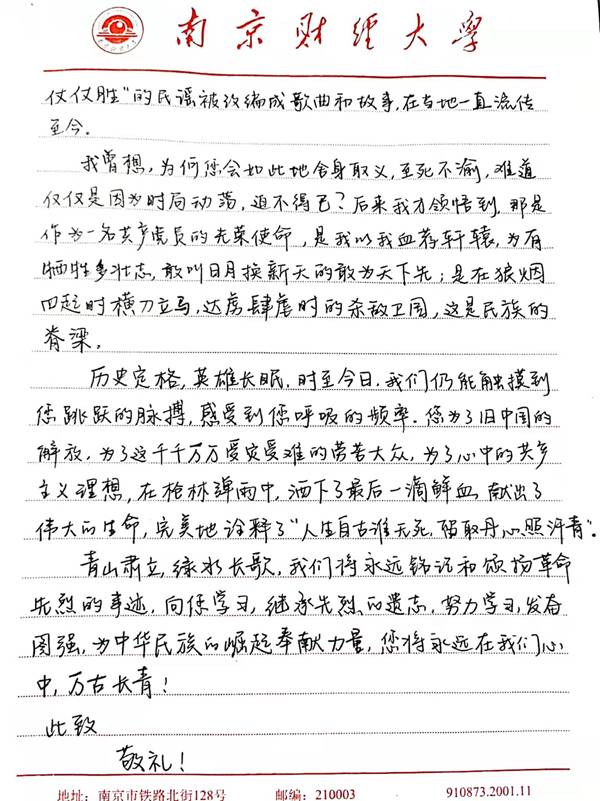 南京财经大学
仗仗胜"的民谣被改编成歌曲和故事,在当地一直流传
至今。
我曾想,为何您会如此地舍身取义,至死不渝,难道
仅仅是因为时局动荡,迫不得已?后来我才领悟到,那是
作为一名共产党员的光荣使命,是我以我血荐轩辕,为有
牺牲多壮志,敢叫日月换新天的敢为天下先;是在狼烟
四起时横刀立马,达虏肆虐时的杀敌卫国,这是民族的
脊梁。
历史定格,英雄长眠,时至今日,我们仍能触摸到
您跳跃的脉搏,感受到您呼吸的频率。您为了旧中国的
解放,为了这千千万万受灾受难的劳苦大众,为了心中的共产
主义理想,在枪林弹雨中,洒下了最后一滴鲜血,献出了
伟大的生命,完美地诠释了"人生自古谁无死,留取丹心照汗青"。
青山肃立,绿水长歌,我们将永远铭记和颂扬革命
先烈的事迹,向您学习,继承先烈的遗志,努力学习,发奋
图强,为中华民族的崛起奉献力量,您将永远在我们心
中,万古长青!
此致
敬礼!
地址:南京市铁路北街128号 邮编:210003 910873.2001.11